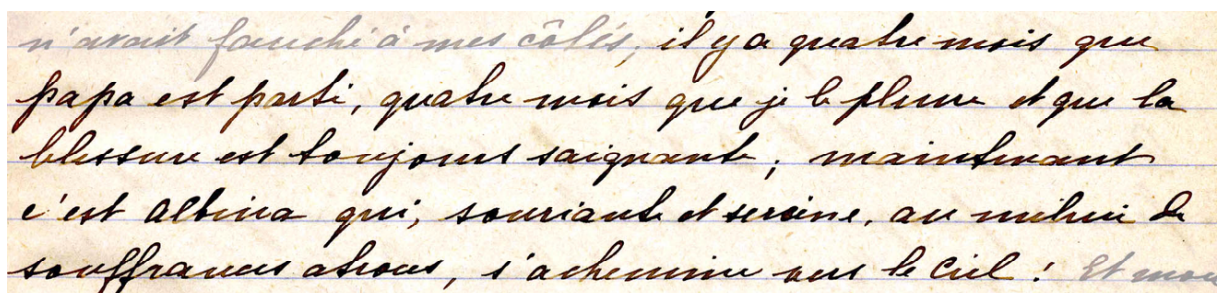 n'avait fauché à mes côtés, il y a quatre mois que
papa est parti, quatre mois que je le pleure et que la
blessure est toujours saignante ; maintenant
c'est Albina qui, souriante et sereine, au milieu de
souffrances atroces, s'achemine vers le Ciel ! Et mon